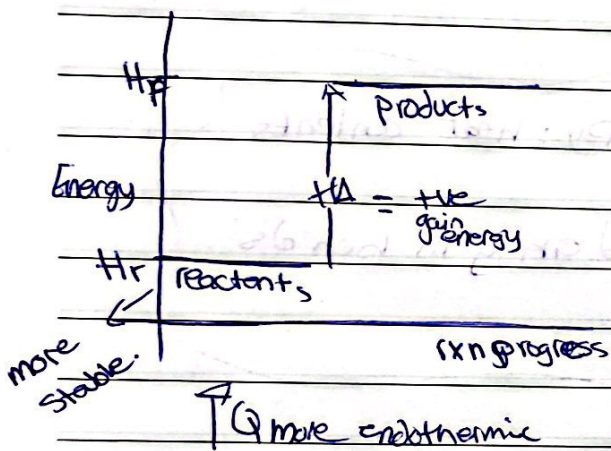 Hp
products
Energy
= +ve
gain
energy
Hr
reactants
more
stable.
rxn progress
Q more endothermic